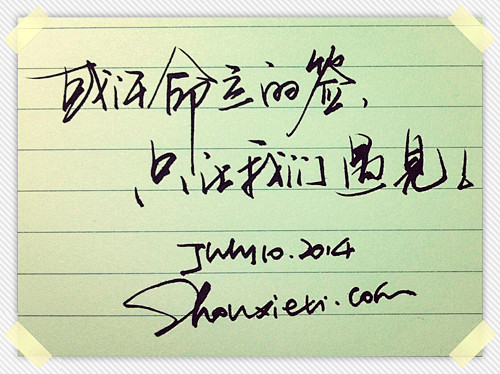 或许命立的签,
只让我们遇見!
July 10.2014
Shouxieti.com